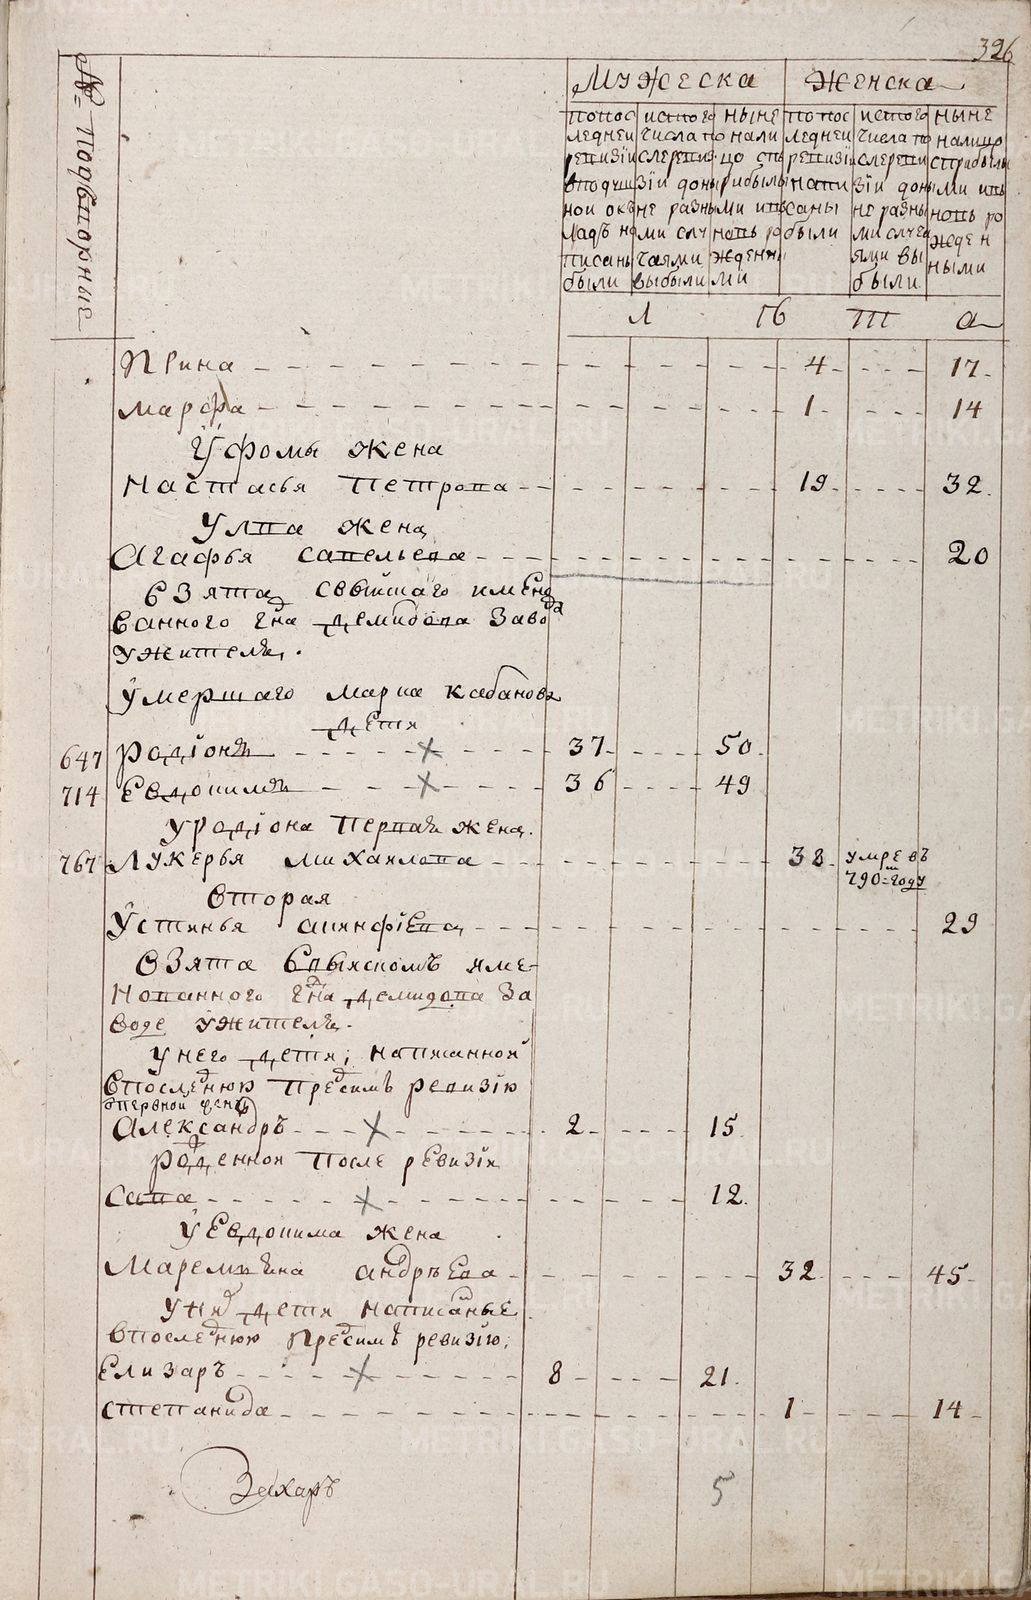 326
№ подворные
Мужеска
Женска
по пос
ледней
ревизiи
в подуш
ной ок
ладъ на
писаны
были
ис того
числа по
сле реви
зiи до ны
не разны
ми слу
чаями
выбыли
ныне
нали
цо съ п
рибылы
ми и в
новь ро
жденны
ми
по пос
ледней
ревизiи
напи
саны
были
ис того
числа по
сле реви
зiи до ны
не разны
ми случа
ями вы
были
ныне
на лицо
с прибылы
ми и в
новь ро
жден
ными
Л
а
Ирина 4 17
марфа 1 14
у фомы жена
Настасья Петрова 19 32.
у лва жена
Агафья савельева 20
взята
ванного г̃на демидова завода
ужителя.
умершаго марка кабанова
дети
647 родiонъ × 37 50.
714 Евдокимъ × 36 49
у родiона первая жена.
767 лукерья михаилова 38 умре въ
790=м году
вторая
устинья 29
взята
нованного г̃на демидова за
воде ужителя.
у него дети, написанной
в последнюю пред симъ ревизiю
от первой жены
Александръ × 2 15
рожденной после ревизiи
сава × 12.
у Евдокима жена
Маремьяна андреева 32 45
у них дети написаные
в последнюю пред симъ ревизiю.
елизаръ × 8 21.
степанида 1 14
Захаръ 5
METRIKI.GASO-URAL.RU